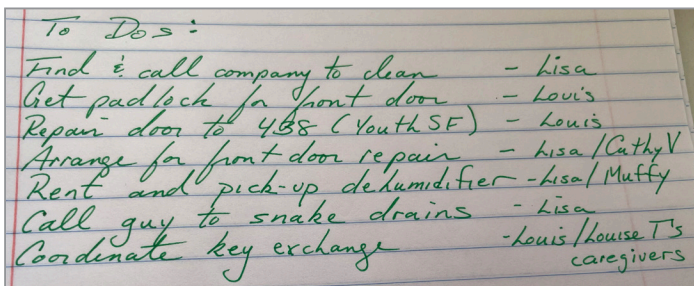 To Dos:
Find & call company to clean - Lisa
Get padlock for front door - Louis
Repair door to 438 (Youth SF) - Louis
Arrange for front door repair - Lisa/Cathy V
Rent and pick-up dehumidifier - Lisa/Muffy
Call guy to snake drains - Lisa
Coordinate key exchange - Louis/Louise T's
caregivers